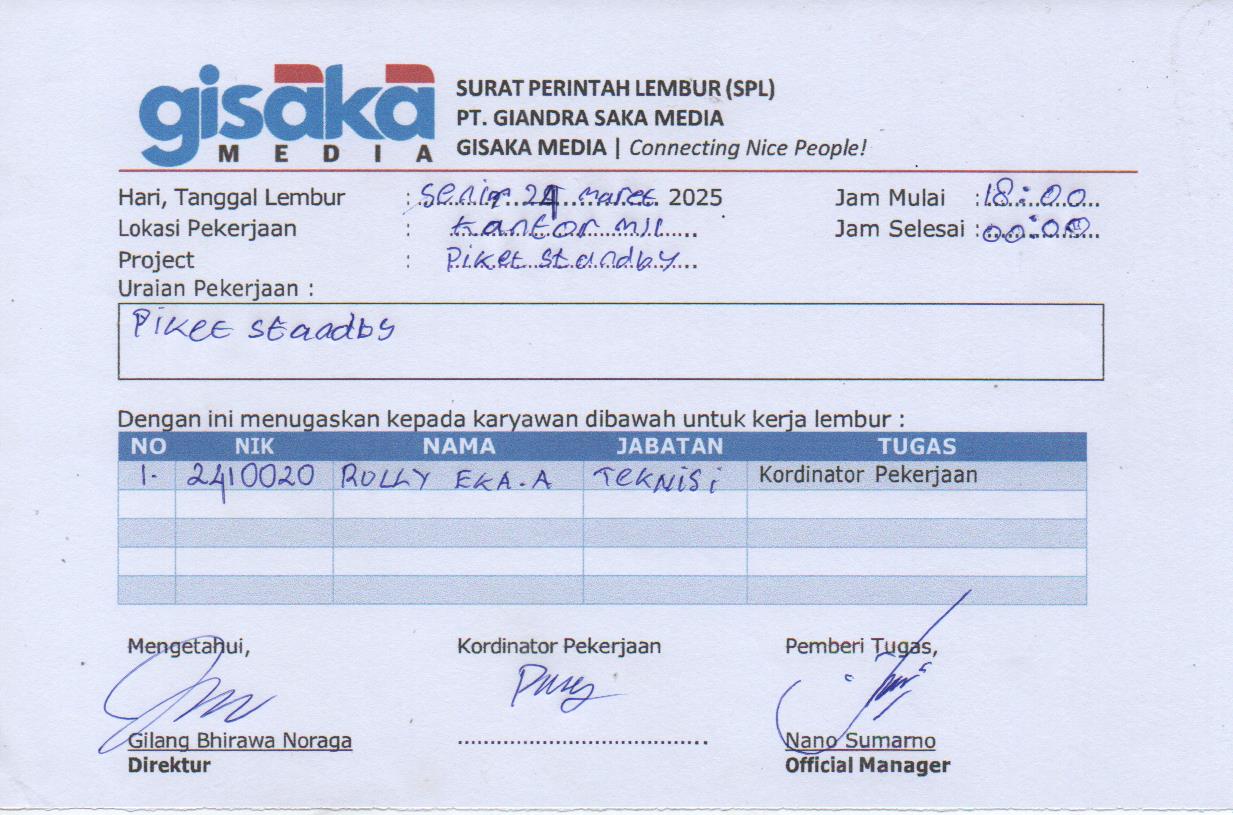 gisaka
MEDIA
SURAT PERINTAH LEMBUR (SPL)
PT. GIANDRA SAKA MEDIA
GISAKA MEDIA | Connecting Nice People!
Hari, Tanggal Lembur : Senin, 24 maret 2025 Jam Mulai : 18:00
Lokasi Pekerjaan : kantor MII Jam Selesai : 00:00
Project : Piket standby
Uraian Pekerjaan :
Piket standby
Dengan ini menugaskan kepada karyawan dibawah untuk kerja lembur :
NO NIK NAMA JABATAN TUGAS
1. 2410020 ROLLY EKA.A TEKNISI Kordinator Pekerjaan
Mengetahui, Kordinator Pekerjaan Pemberi Tugas,
Gilang Bhirawa Noraga Nano Sumarno
Direktur Official Manager